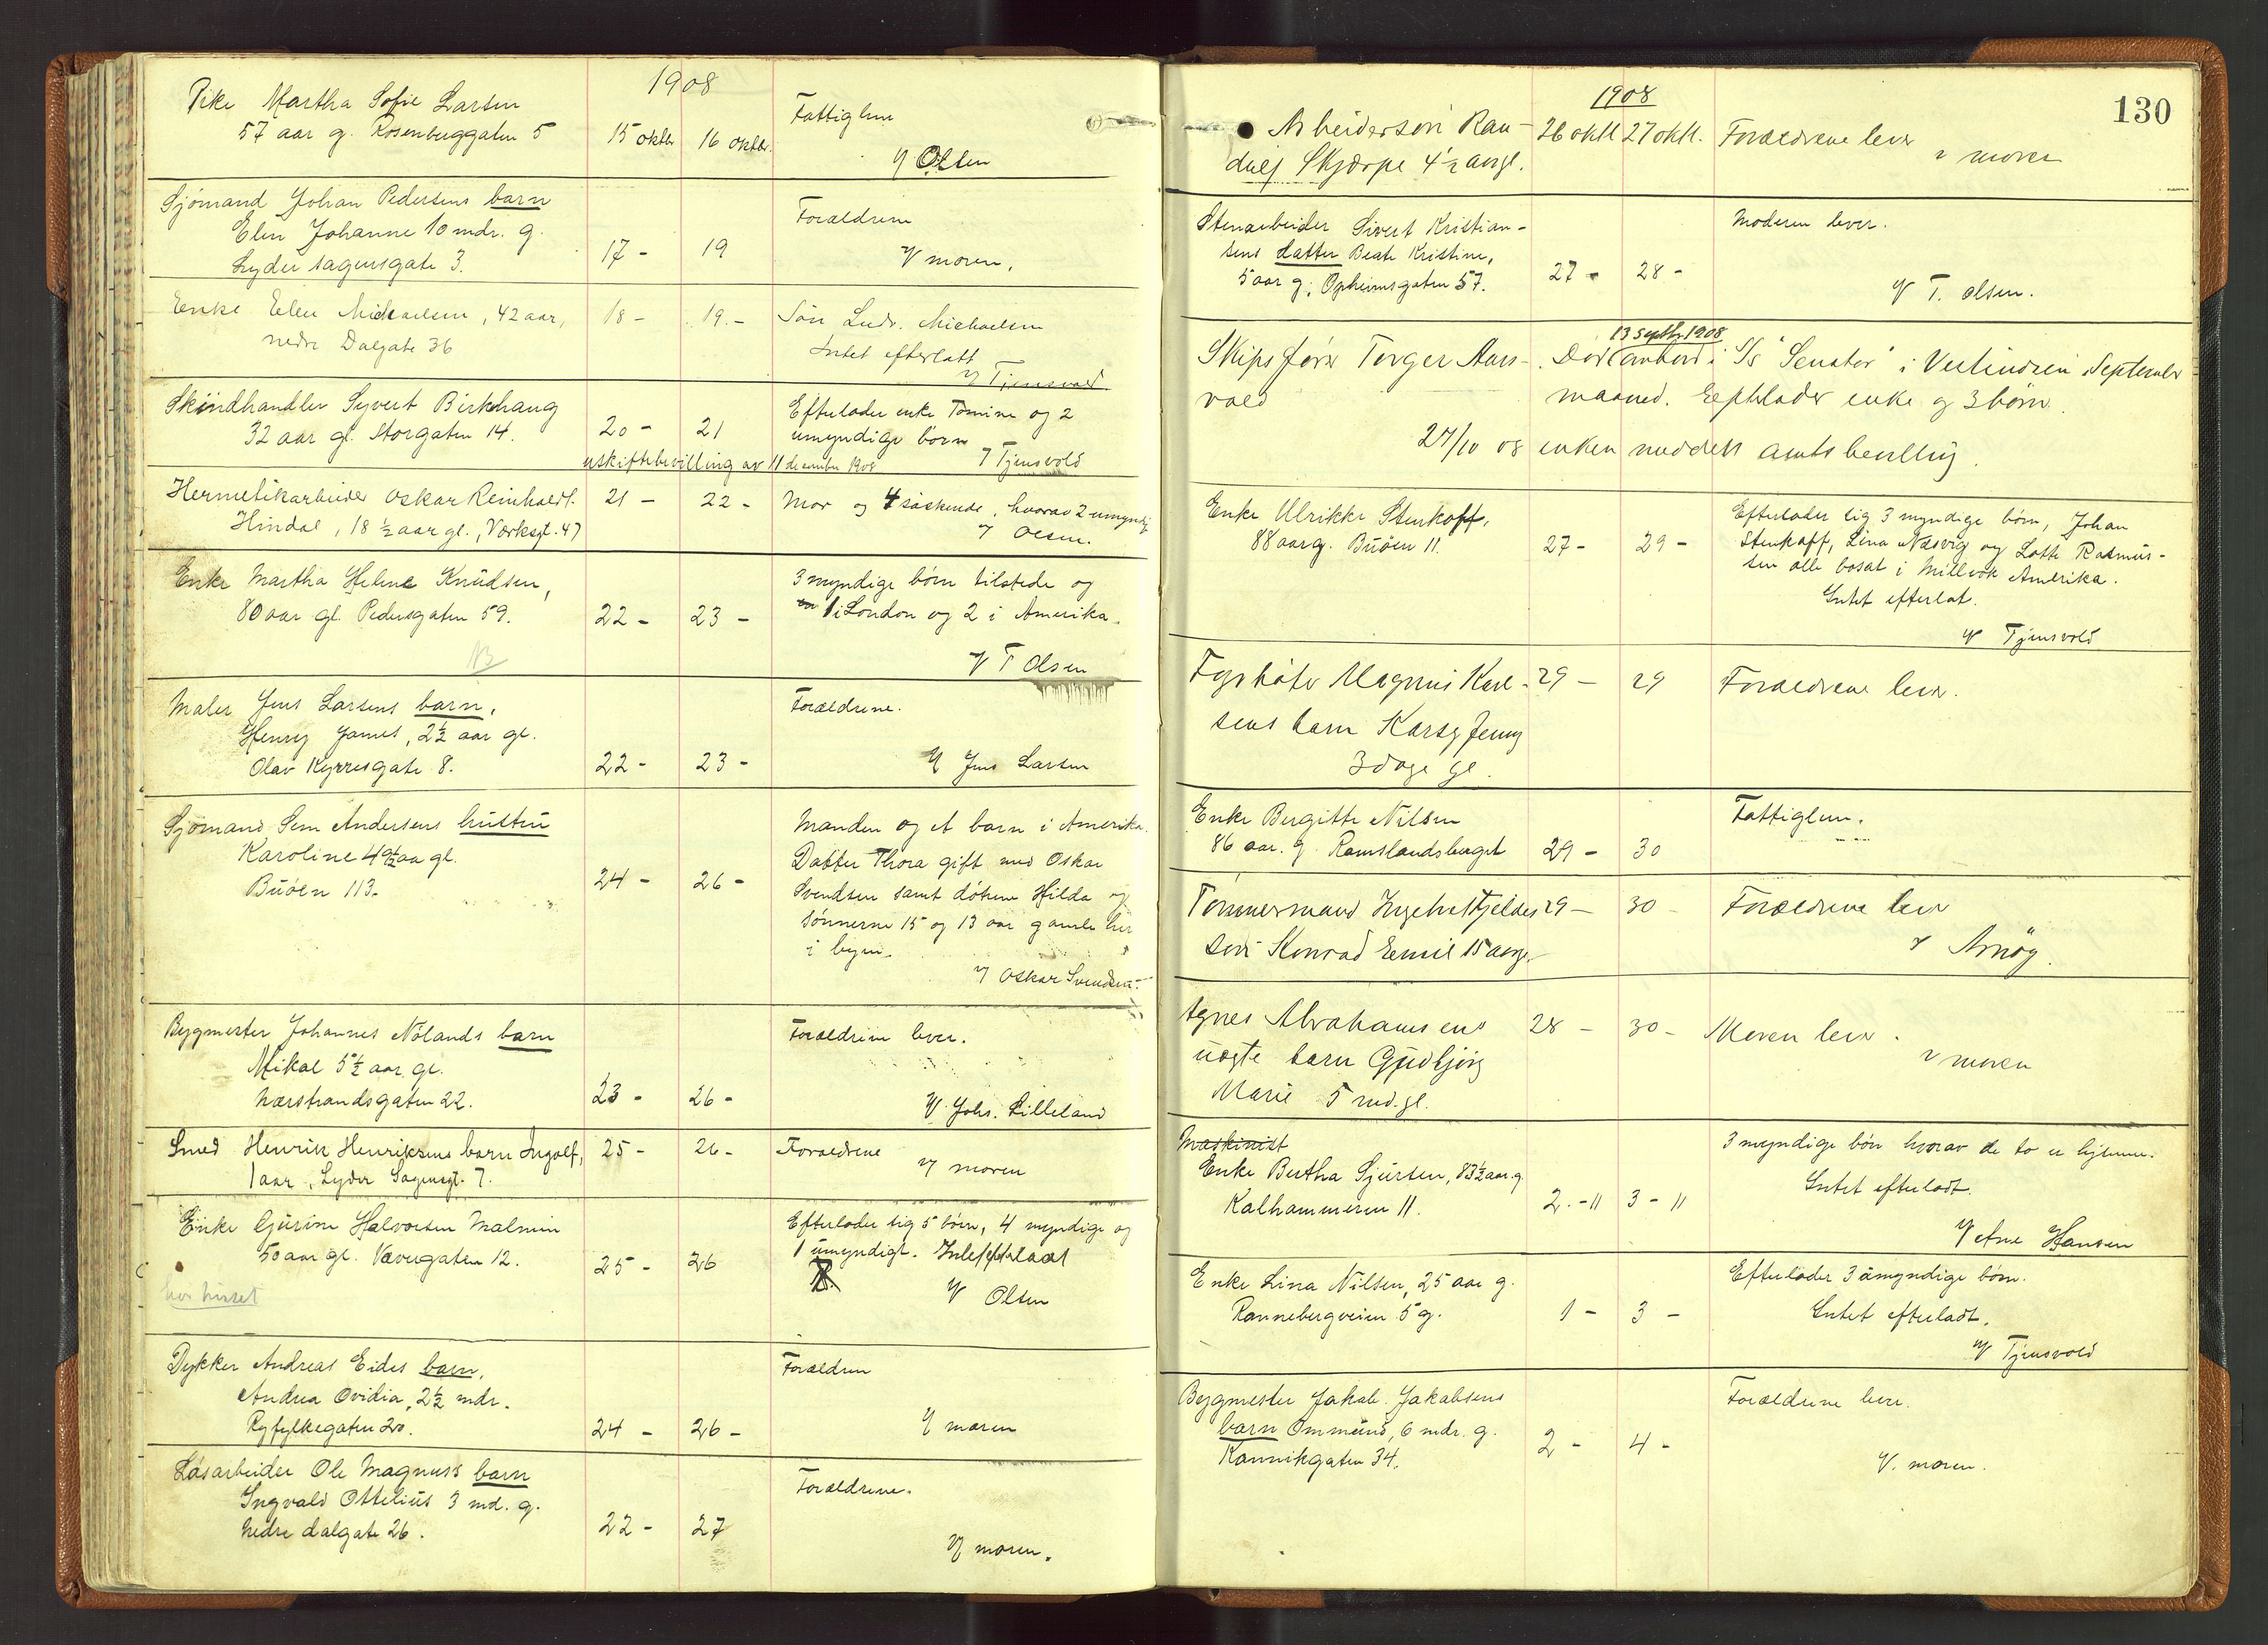 1908
Pike Martha Sofie Larsen
57 aar g. Rosenberggaten 5
15 oktbr
16 oktbr.
Fattiglem
V Olsen
Sjömand Johan Pedersens barn
Elen Johanne 10 mdr. g.
Lyder sagensgate 3.
17 -
19
Forældrene
V moren.
Enke Elen Michaelsen, 42 aar,
nedre Dalgate 36
18 -
19. -
Sön Ludv. Michaelsen
Intet efterlatt
V Tjensvold
Skindhandler Syvert Birkhaug
32 aar gl. Storgaten 14.
20 -
21
Efterlader enke Tomine og 2
umyndige börn
V Tjensvold
uskiftebevilling av 11 december 1908
Hermetikarbeider Oskar Reinholdt
Hindal, 18 ½ aar gl., Værksgt. 47
21 -
22 -
Mor og 4 söskende, hvorav 2 umyndig
V Olsen.
Enke Martha Helene Knudsen,
80 aar gl. Pedersgaten 59.
NB
22 -
23 -
3 myndige börn tilstede og
1 i London og 2 i Amerika.
V T Olsen
Maler Jens Larsens barn,
Henry James, 2½ aar gl.
Olav Kyrresgate 8.
22 -
23 -
Forældrene.
V Jens Larsen
Sjömand Sem Andersens hustru
Karoline 4½ aa gl.
Buöen 113.
24 -
26 -
Manden og et barn i Amerika.
Datter Thora gift med Oskar
Svendsen samt dötrene Hilda og
sönnerne 15 og 13 aar gamle her
i byen.
V Oskar Svendsen.
Bygmester Johannes Nölands barn
Mikal 5½ aar gl.
Nærstrandsgaten 22.
23 -
26 -
Forældrene lever.
V. Johs. Lilleland
Smed Henrik Henriksens barn Ingolf,
1 aar, Lyder Sagensgt. 7.
25 -
26 -
Forældrene
V moren
Enke Gurine Halvorsen Malmin
50 aar gl. Vævergaten 12.
25 -
26
Efterlader sig 5 börn, 4 myndige og
1 umyndigt. Intet efterlaat
V Olsen
Dykker Andreas Eides barn,
Andrea Ovidia, 2½ mdr.
Ryfylkegaten 20.
24 -
26 -
Forældren
V moren
Lösarbeider Ole Magnuss barn
Ingvald Ottelius 3 md. g.
Nedre dalgate 26.
22 -
27
Forældrene.
V moren.
130
1908
Arbeidersön Ran-
dulf Skjærpe 4½ aargl.
26 oktb
27 oktb.
Forældrene lever
v moren
Stenarbeider Sivert Kristian-
sens datter Beate Kristine,
5 aar g; Opheimsgaten 57.
27 -
28 -
Moderen lever.
V T. Olsen.
Skipsförer Torger Aars-
vold
13 septbr. 1908
Död ombord i S/s "Senator" i Vestindien i September
maaned. Efterlader enke og 3 börn.
27/10 08 enken meddelt amtsbevilling.
Enke Ulrikke Stenkopf,
88 aar g. Buöen 11.
27 -
29 -
Efterlader sig 3 myndige börn, Johan
Stenkopf, Lina Næsvig og Lotte Rasmus-
sen alle bosat i Millvok Amerika.
Intet efterlat.
V Tjensvold
Fyrböter Magnus Karl-
sens barn Karsy Jenny
3 dage gl.
29 -
29
Forældrene lever.
Enke Bergitte Nilsen
86 aar. g. Ramslandsberget
29 -
30
Fattiglem.
Tömmermand Ingebr. Fjeldes
sön Konrad Emil 15 aargl.
29 -
30 -
Forældrene lever
v Arnög.
Agnes Abrahamsens
uægte barn Gudbjörg
Marie 5 md. gl.
28 -
30 -
Moren lever.
v moren
Maskinist
Enke Bertha Sjursen, 83½ aar. g.
Kalhammeren 11.
2. - 11
3 - 11
3 myndige börn hvorav de to er hjemme.
Intet efterladt.
V Ane Hansen
Enke Lina Nilsen, 25 aar g.
Rannebergveien 5 g.
1 -
3 -
Efterlader 3 umyndige börn.
Intet efterladt.
V Tjensvold
Bygmester Jakob Jakobsens
barn Ommund, 6 mdr. g.
Kannikgaten 34.
2 -
4 -
Forældrene lever.
V. moren.